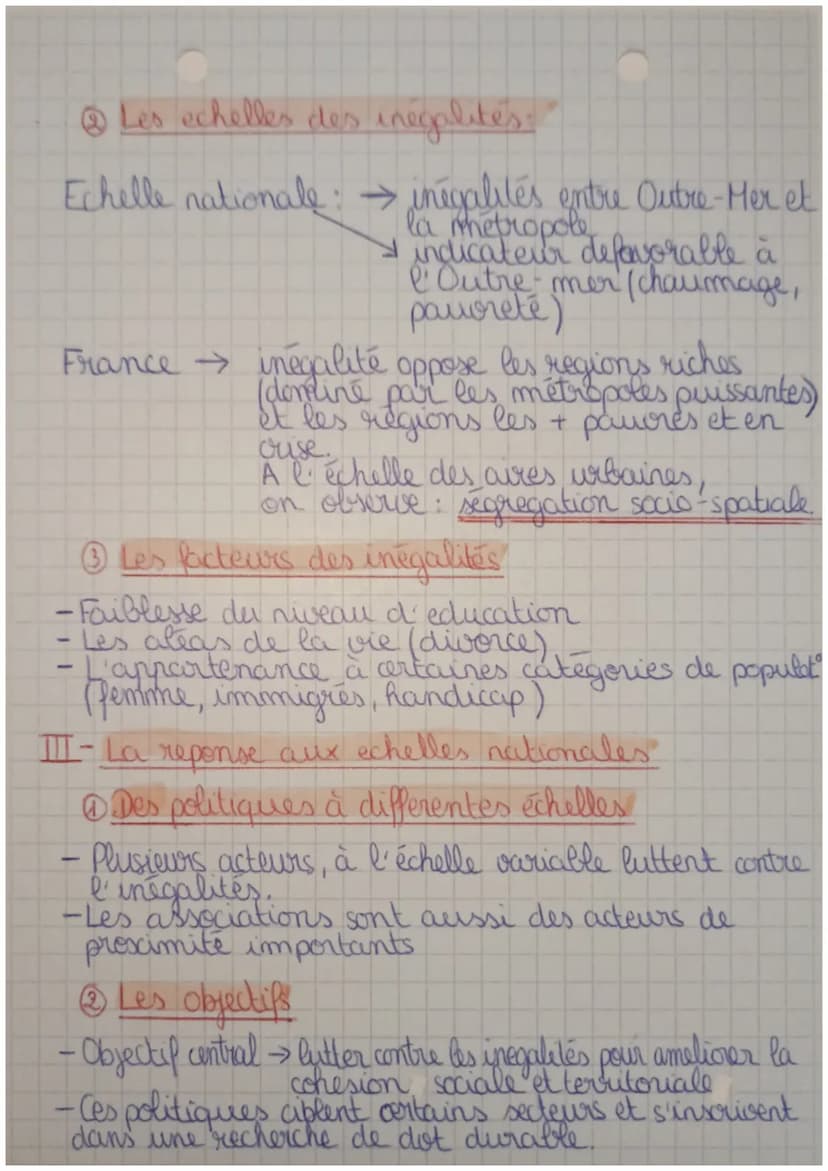 ② Les echelles des inégalités:
Echelle nationale : → inégalités entre Outre-Mer et
la métropole
↘ indicateur defavorable à
l'Outre-mer (chaumage,
pauvreté)
France → inégalité oppose les regions riches
(dominé par les métropoles puissantes)
et les régions les + pauvres et en
crise.
A l'échelle des aires urbaines,
on observe : ségregation socio-spatiale.
③ Les facteurs des inégalités
- Faiblesse du niveau d'education
- Les aléas de la vie (divorce)
- L'appartenance à certaines catégories de populat°
(femme, immigrés, handicap)
III - La reponse aux echelles nationales
① Des politiques à differentes échelles
- Plusieurs acteurs, à l'échelle variable luttent contre
l'inégalités.
- Les associations sont aussi des acteurs de
proximité importants
② Les objectifs
- Objectif central → lutter contre les inegalités pour ameliorer la
cohesion sociale et territoriale
- Ces politiques ciblent certains secteurs et s'inscrivent
dans une recherche de dvt durable.